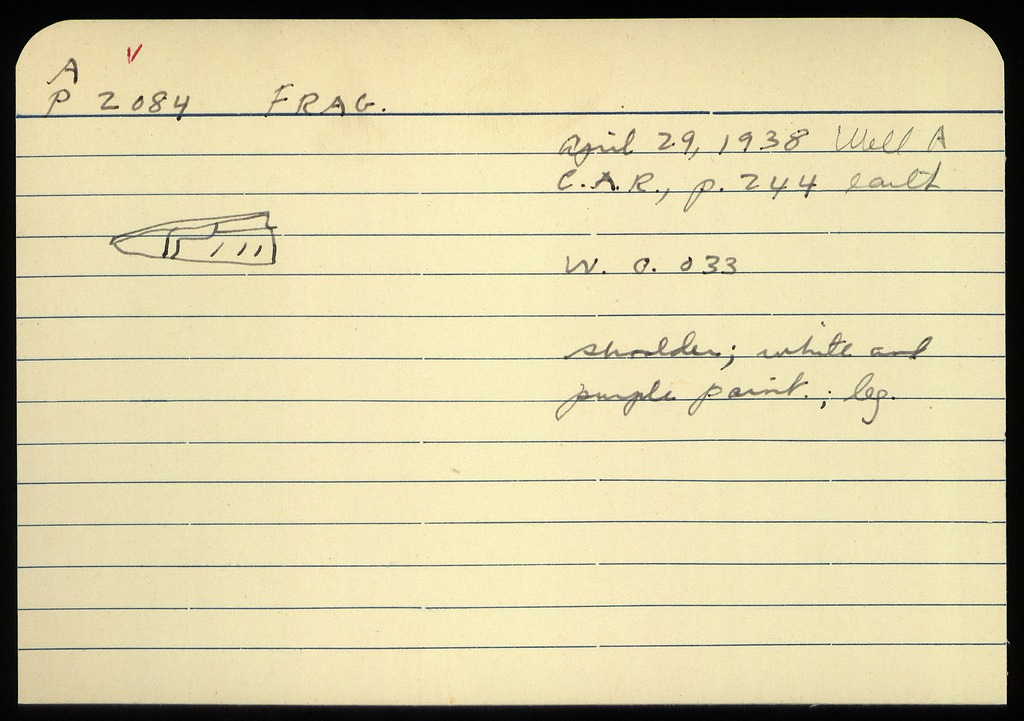 A
P 2084 FRAG.
April 29, 1938 Well A
C.A.R., p. 244 earth
W. O. 033
shoulder; white and
purple paint.; leg.